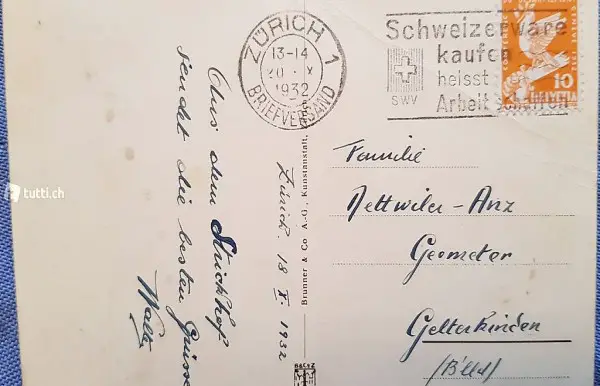 ZÜRICH 1
13-14
1932
BRIEFVERSAND
Schweizerware
kaufen
heisst
Arbeit schaffen
SWV
10
HELVETIA
Aus dem Strickhof
sendet die besten Grüsse
Walter
Zürich. 18 X. 1932
Brunner & Co A.-G., Kunstanstalt,
Familie
Dettwiler-Anz
Geometer
Gelterkinden
(B'lld)
B&C°Z
tutti.ch